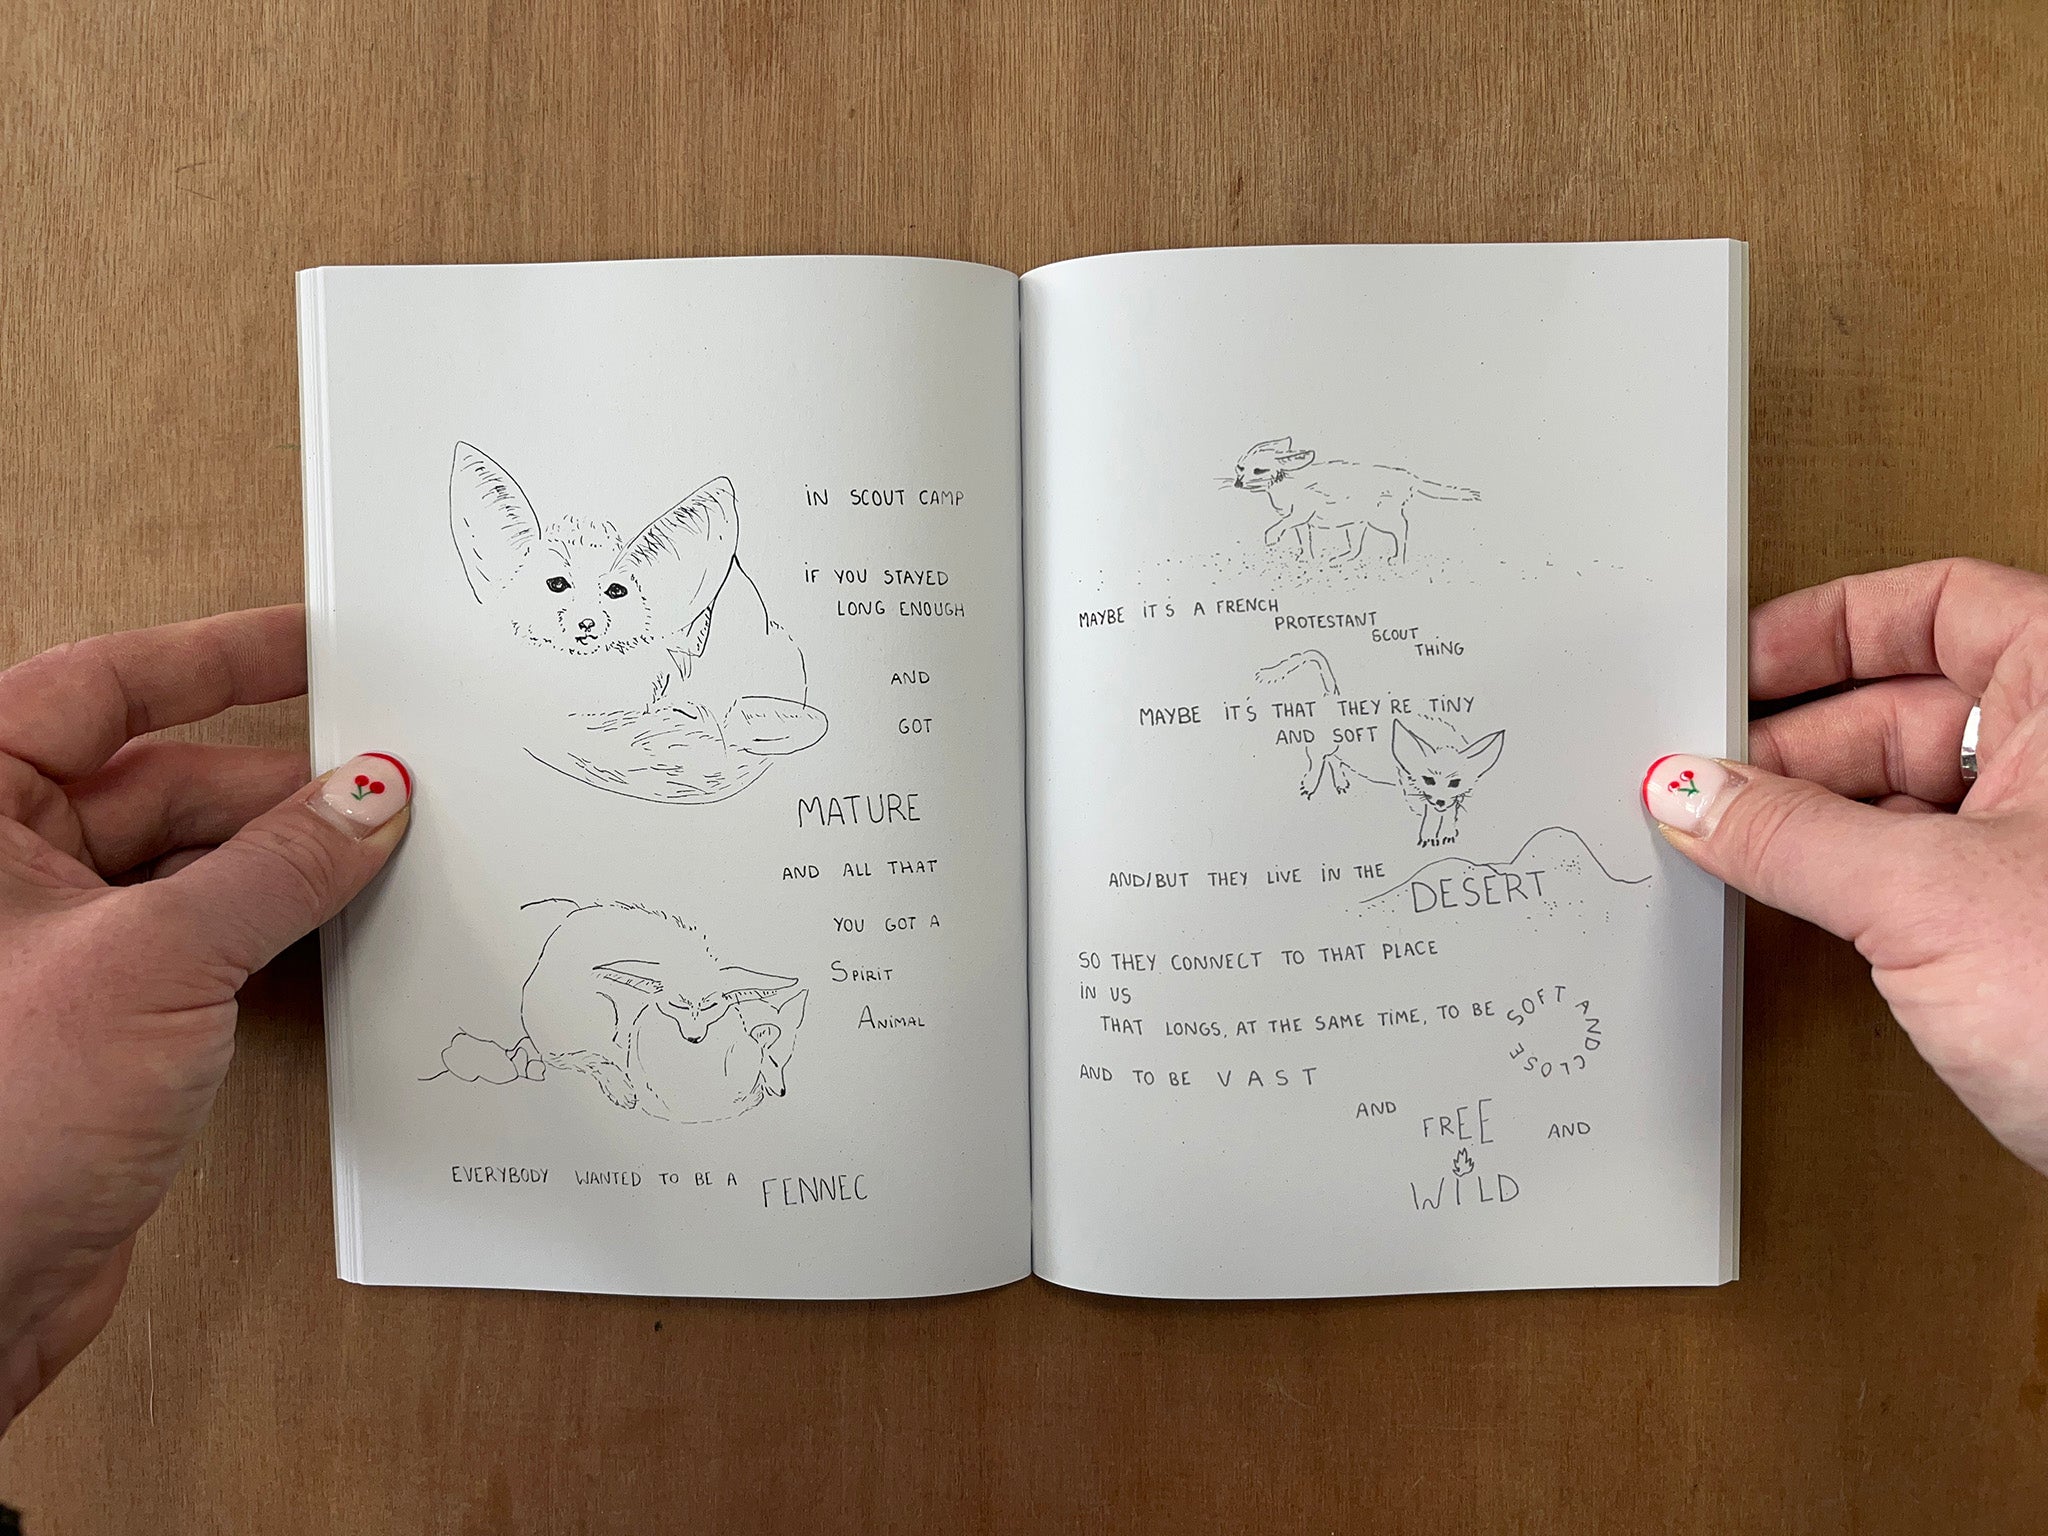 iN SCOUT CAMP
iF YOU STAYED
LONG ENOUGH
AND
GOT
MATURE
AND ALL THAT
YOU GOT A
SPiRiT
ANiMAL
EVERYBODY WANTED TO BE A FENNEC
MAYBE iT'S A FRENCH
PROTESTANT
SCOUT
THiNG
MAYBE iT'S THAT THEY'RE TiNY
AND SOFT
AND/BUT THEY LiVE iN THE DESERT
SO THEY CONNECT TO THAT PLACE
iN US
THAT LONGS, AT THE SAME TIME, TO BE SOFT AND CLOSE
AND TO BE VAST
AND FREE AND
WILD